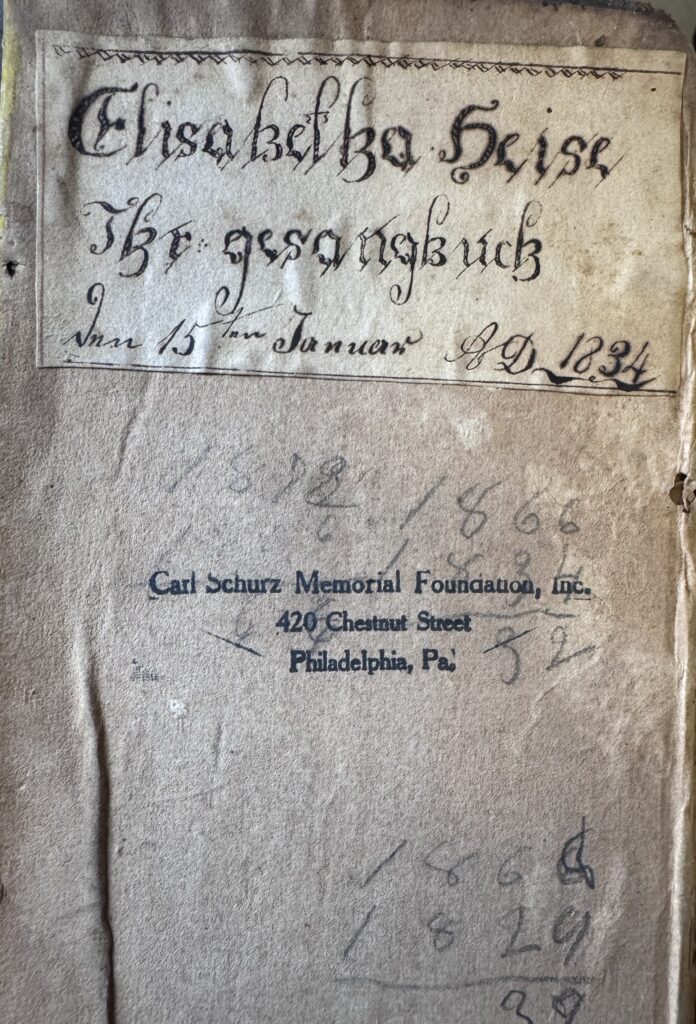 Elisabetha Heise
Ihr gesangbuch
den 15ten Januar AD 1834
1866
1834
32
Carl Schurz Memorial Foundation, Inc.
420 Chestnut Street
Philadelphia, Pa.
1868
1829
39